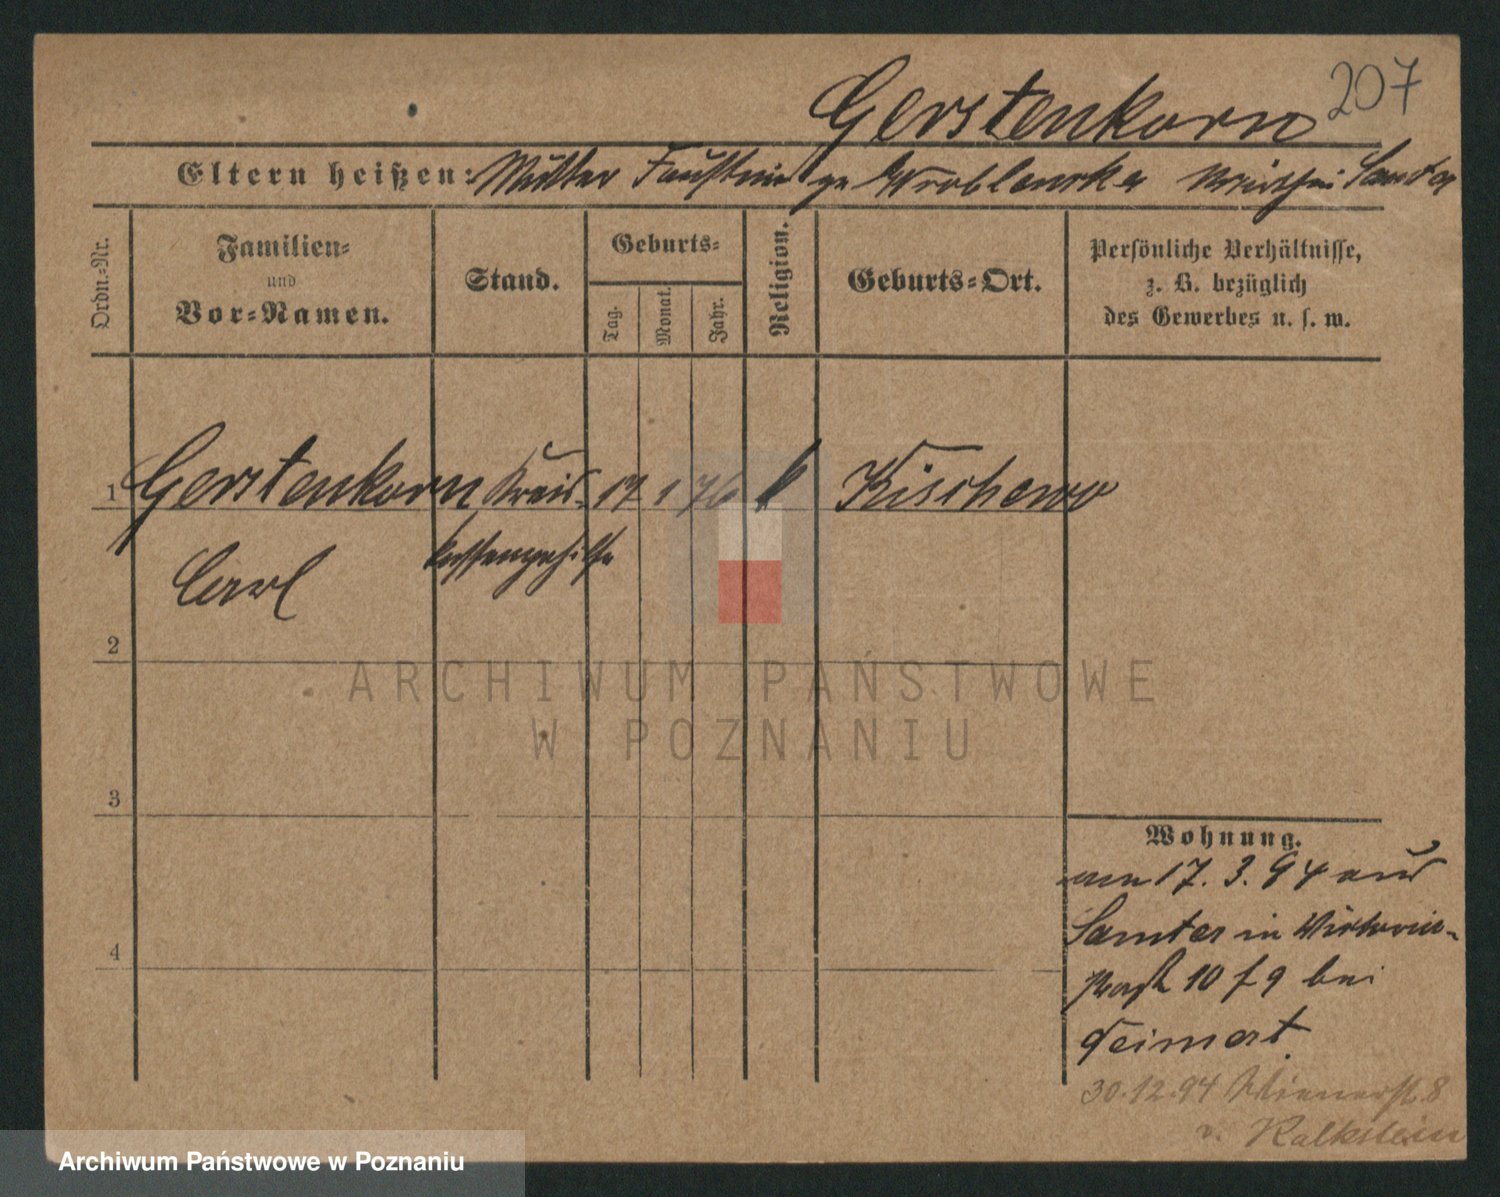 Gerstenkorn 207
Eltern heißen: Mutter Faustina ge Wroblewska Samter
Ordn.-Nr.
Familien-
und
Vor-Namen.
Stand.
Geburts-
Tag.
Monat.
Jahr.
Religion.
Geburts-Ort.
Persönliche Verhältnisse,
z. B. bezüglich
des Gewerbes u. s. w.
1 Gerstenkorn Kreis- 17 1 76 k Kischewo
Carl kassengehilfe
2
3
4
Wohnung.
am 17. 3. 94 aus
Samter in
10 f 9 bei
30.12.94 Wienerst. 8
v. Kalkstein
ARCHIWUM PAŃSTWOWE
W POZNANIU
Archiwum Państwowe w Poznaniu